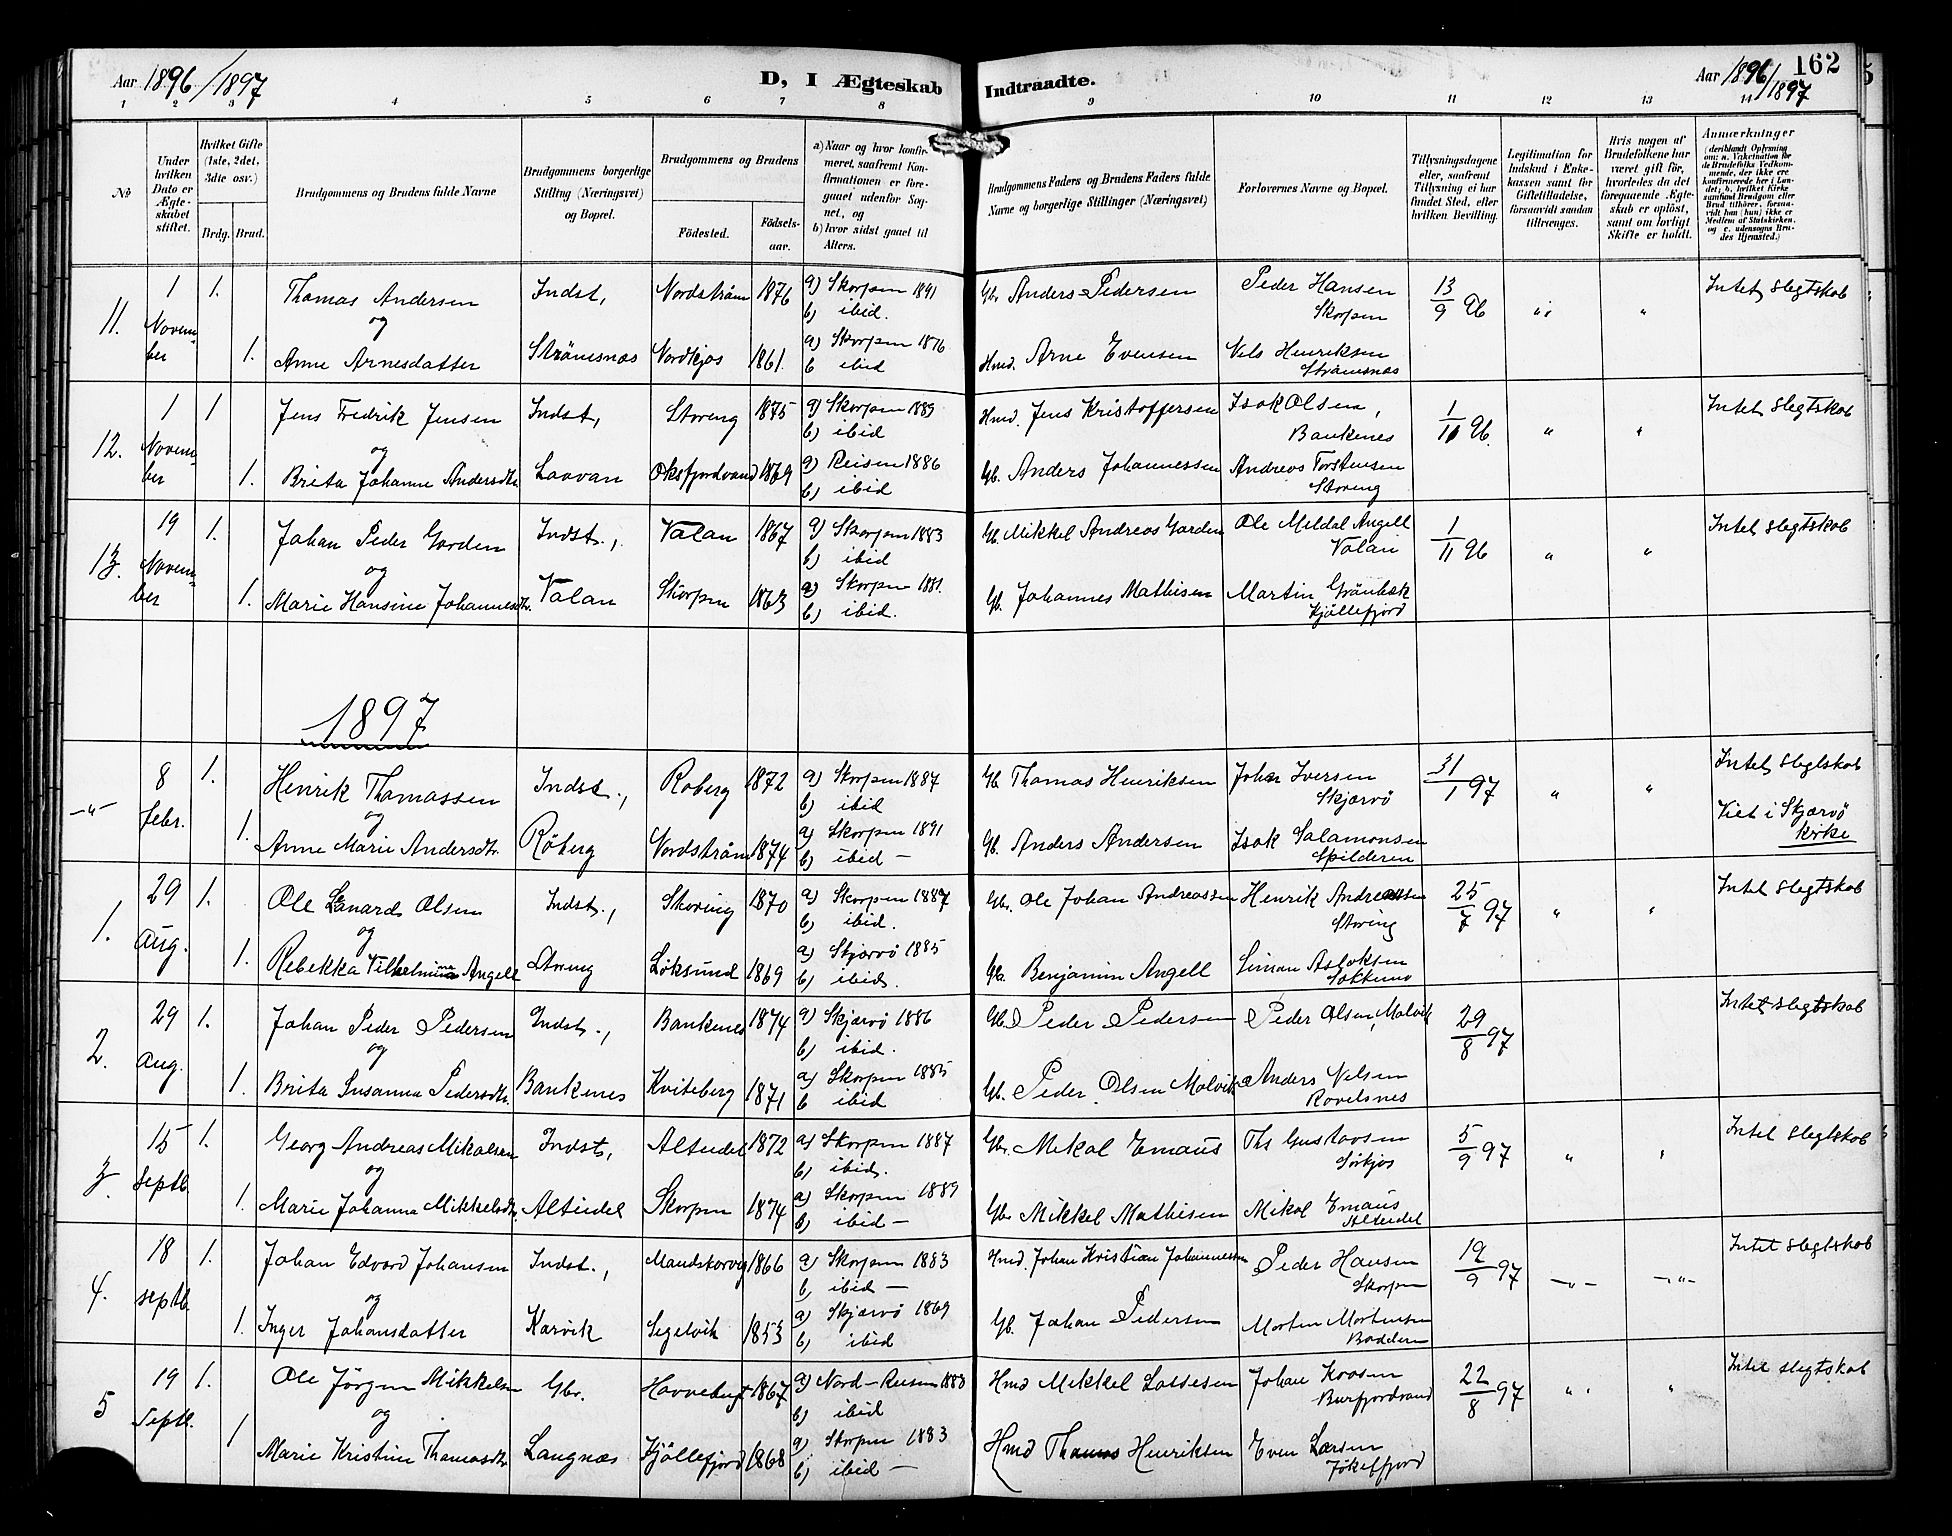 Aar 1896/1897
D, I Ægteskab Indtraadte.
Aar 1896/1897
162
1 2 3 4 5 6 7 8 9 10 11 12 13 14
№
Under hvilken Dato er Ægteskabet stiftet.
Hvilket Gifte (1ste, 2det, 3die osv.)
Brdg. Brud.
Brudgommens og Brudens fulde Navne
Brudgommens borgerlige Stilling (Næringsvei) og Bopæl.
Brudgommens og Brudens
Fødested.
Fødselsaar.
a) Naar og hvor konfirmeret, saafremt Konfirmationen er foregaaet udenfor Sognet, og
b) hvor sidst gaaet til Alters.
Brudgommens Faders og Brudens Faders fulde Navne og borgerlige Stillinger (Næringsvei)
Forlovernes Navne og Bopæl.
Tillysningsdagene eller, saafremt Tillysning ei har fundet Sted, efter hvilken Bevilling.
Legitimation for Indskud i Enkekassen samt for Giftetilladelse, forsaavidt saadan tiltrænges.
Hvis nogen af Brudefolkene har været gift før, hvorledes da det foregaaende Ægteskab er opløst, samt om lovligt Skifte er holdt.
Anmærkninger (deriblandt Oplysning om: a. Vakcination for de Brudefolks Vedkommende, der ikke ere konfirmerede her i Landet; b. hvilket Kirkesamfund Brudgom eller Brud tilhører, forsaavidt han (hun) ikke er Medlem af Statskirken, og c. udensogns Brudes Hjemsted.)
11. 1 November 1. Thomas Andersen Indst, Nordstrøm 1876 a) Skorpen 1891 b) ibid. Gbr. Anders Pedersen Peder Hansen Skorpen 13/9 96 " " Intet slegtskab
og
1. Anne Arnesdatter Strömsnæs Nordkjos 1861. a) Skorpen 1876 b ibid Hmd. Arne Evensen Nels Henriksen Strömsnæs
12. 1 November 1 Jens Fredrik Jensen Indst, Storeng 1875 a) Skorpen 1889 b) ibid Hmd. Jens Kristoffersen Isak Olsen, Bankenes 1/11 96. " " Intet slegtskab
og
1. Brita Johanne Andersdtr. Laavan Oksfjordvand 1869 a) Reisen 1886 b) ibid Gb. Anders Johannessen Andreas Torstensen Storeng
13. 19 November 1. Johan Peder Garden Indst., Valan 1867 a) Skorpen 1883 b) ibid Gb. Mikkel Andreas Garden Ole Meldal Angell Valan 1/11 96 " " Intet slegtskab
og
1. Marie Hansine Johannesdtr. Valan Skorpen 1863 a) Skorpen 1881. b) ibid. Gb. Johannes Mathisen Martin Grönbæk Kjöllefjord
1897
-"- 8 febr. 1. Henrik Thomassen Indst., Roberg 1872 a) Skorpen 1887 b) ibid Gb Thomas Henriksen Johan Iversen Skjærvö 31/1 97 " " Intet slegtskab
og Viet i Skjærvö kirke
1. Anne Marie Andersdtr. Röberg Nordstrøm 1874 a) Skorpen 1891 b) ibid – Gb. Anders Andersen Isak Salamonsen Spilderen
1. 29 Aug. 1. Ole Lenard Olsen Indst., Storeng 1870 a) Skorpen 1887 b) ibid. Gbr. Ole Johan Andreassen Henrik Andreassen Storeng 25/7 97 " " Intet slegtskab
og
1. Rebekka Vilhelmina Angell Storeng Löksund 1869 a) Skjærvö 1885 b) ibid. Gb. Benjamin Angell Simon Aslaksen
2. 29 Aug. 1. Johan Peder Pedersen Indst., Bankenes 1874 a) Skjærvö 1886 b) ibid. Gb. Peder Pedersen Peder Olsen, Malvik 29/8 97 Intet slegtskab
og
1. Brita Susanna Pedersdtr. Bankenes Kviteberg 1871 a) Skorpen 1885 b ibid Gb. Peder Olsen Malvik Anders Nelsen Ravelsnes
3. 15 Septb. 1. Georg Andreas Mikalsen Indst, Alteidet 1872 a) Skorpen 1887 b) ibid. Gb. Mikal Emaus Ths Gustavsen Sørkjos 5/9 97 " " Intet slegtskab
og
1. Marie Johanna Mikkelsdtr. Alteidet Skorpen 1874 a) Skorpen 1889 b) ibid – Gb. Mikkel Mathisen Mikal Emaus Alteidet
4. 18 septb. 1. Johan Edvard Johansen Indst., Mandskarvig 1866 a) Skorpen 1883 b, ibid – Hmd. Johan Kristian Johannessen Peder Hansen Skorpen 12/9 97 -"- -"- Intet slegtskab
og
1. Inger Johansdatter Karvik Segelvik 1853 a) Skjærvö 1869 b) ibid Gb. Johan Pedersen Morten Mortensen Badderen
5 19 Septb. 1. Ole Jörgen Mikkelsen Gbr. Havnebugt 1867 a) Nord-Reisen 1883 b) ibid Hmd Mikkel Larssen Johan Koosen Burfjordvand 22/8 97 " " Intet slegtskab
og
1 Marie Kristine Thomasdtr. Langnæs Kjöllefjord 1868 a) Skorpen 1883 b) ibid – Hmd Thomas Henriksen Even Larsen Jökelfjord